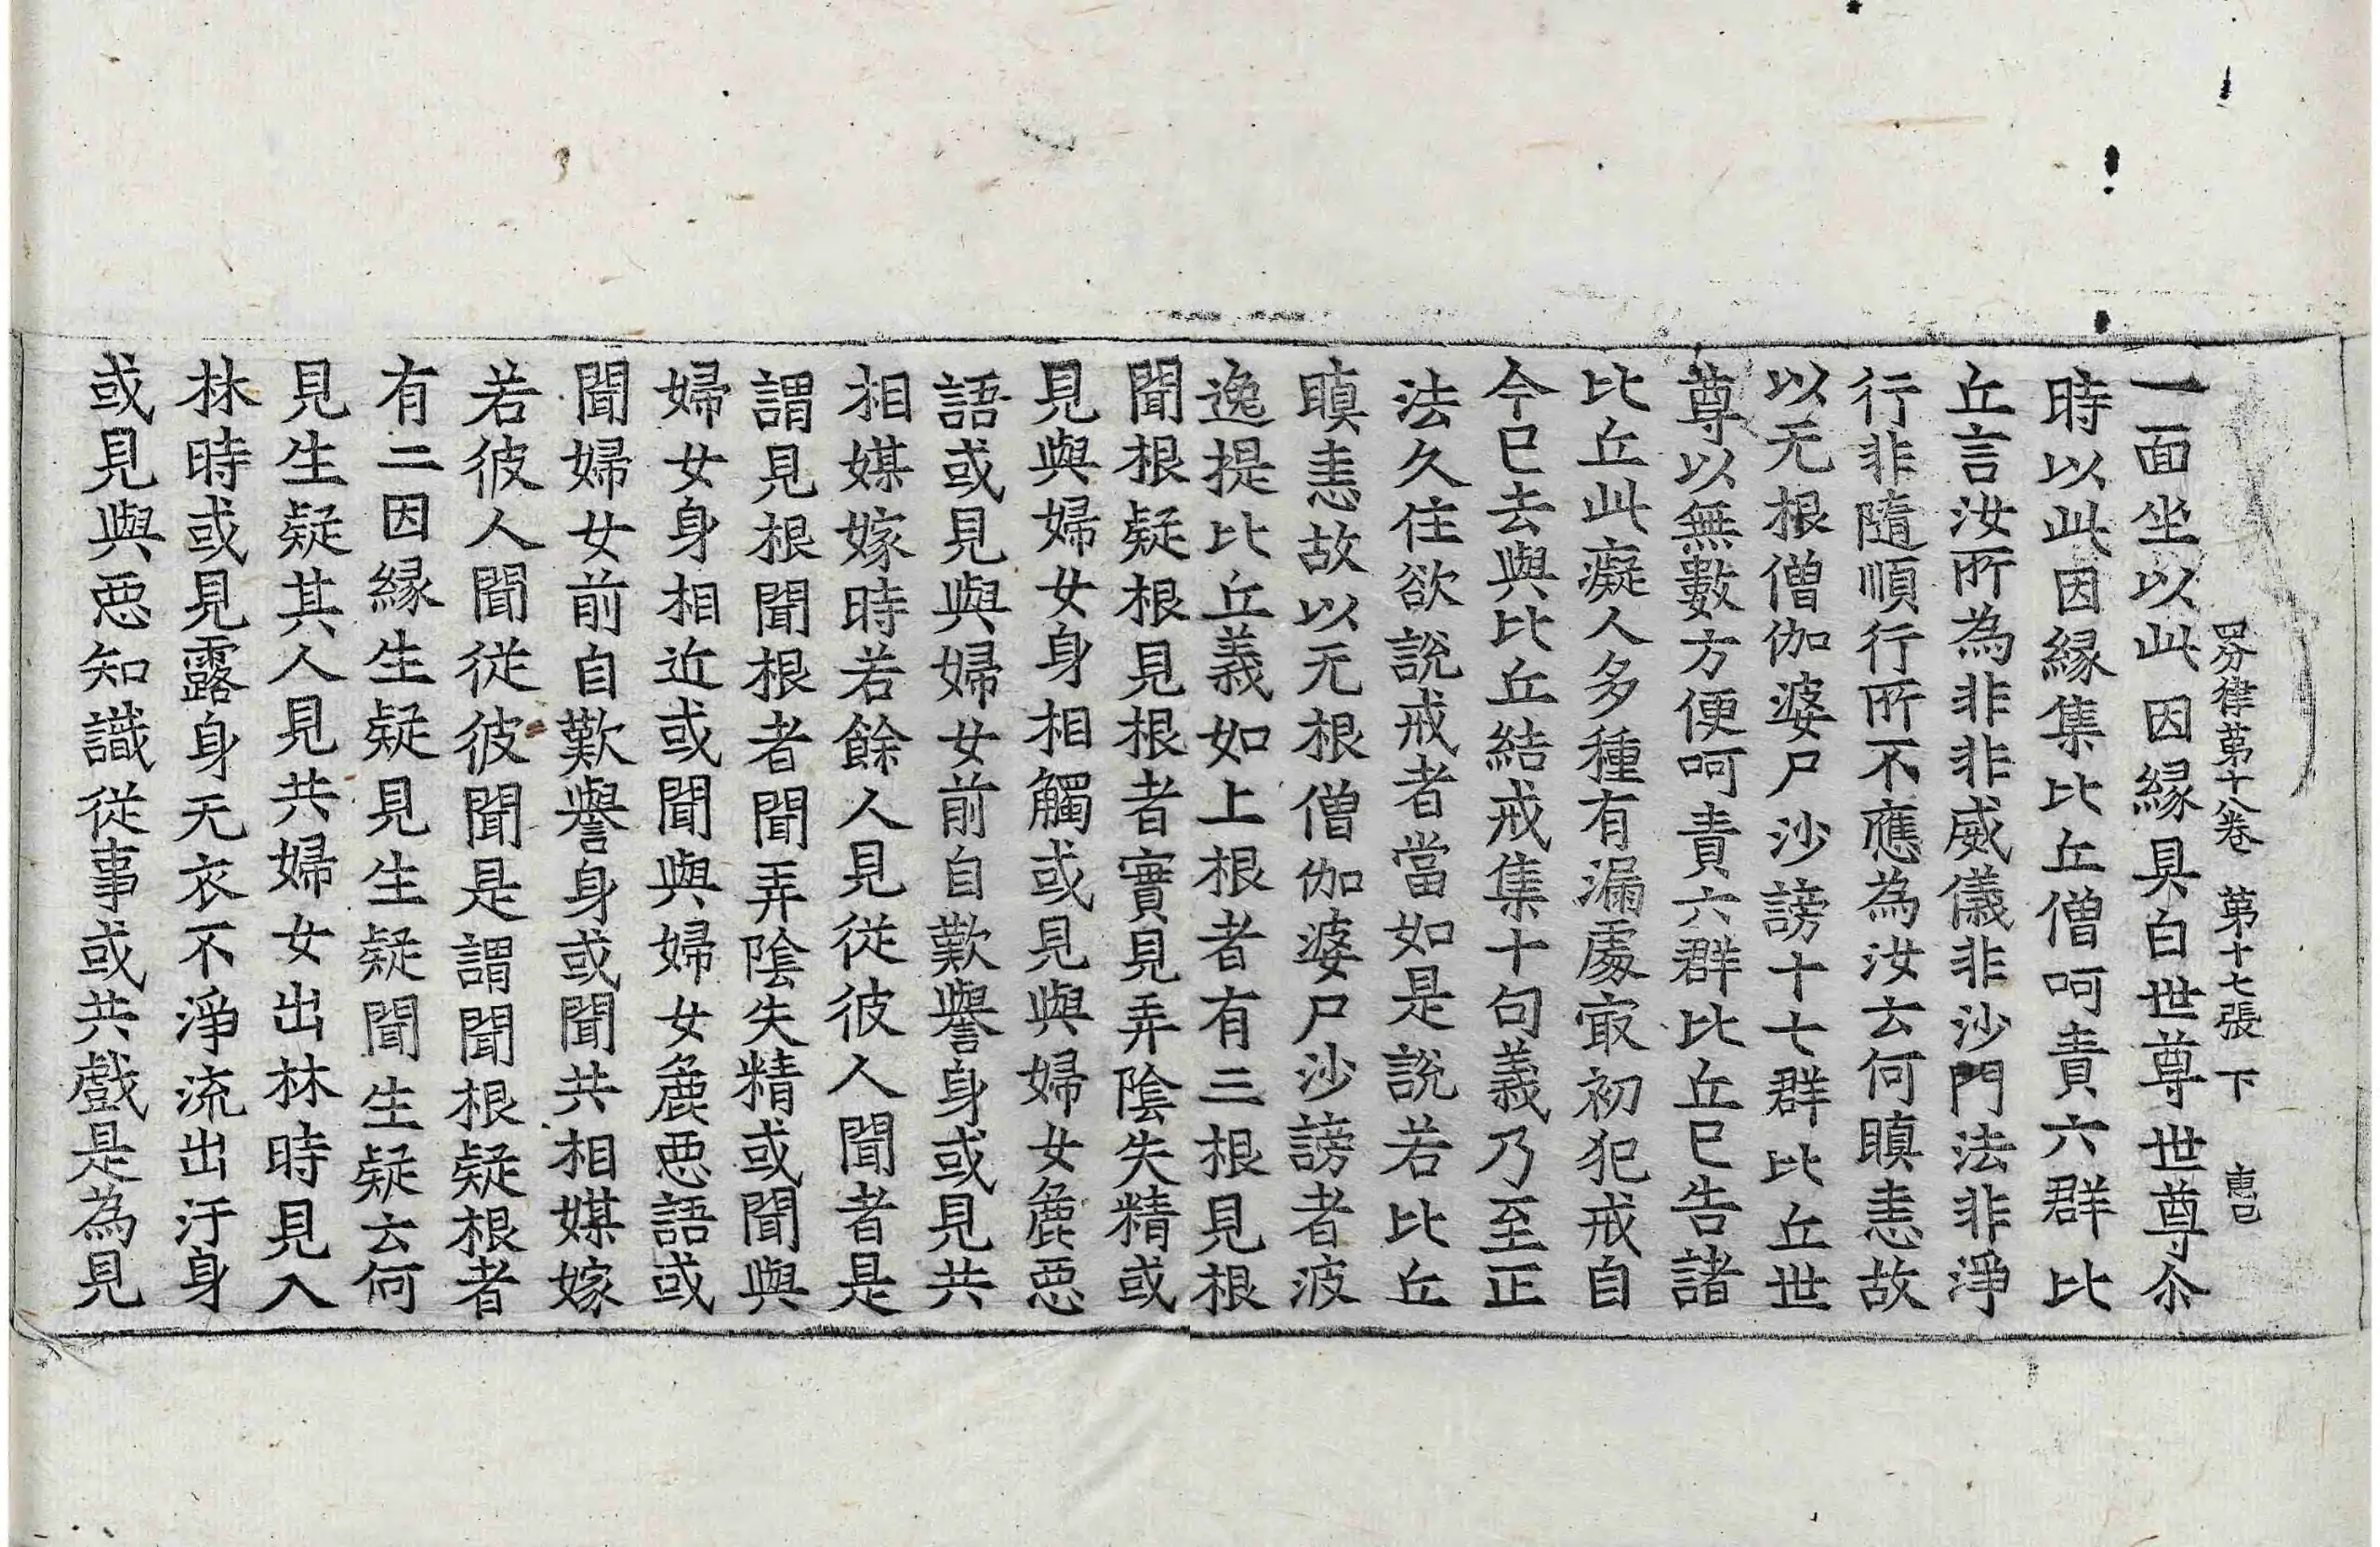 四分律第十八卷 第十七張 下
一面坐以此因緣具白世尊世尊尒
時以此因緣集比丘僧呵責六群比
丘言汝所為非非威儀非沙門法非淨
行非隨順行所不應為汝云何瞋恚故
以无根僧伽婆尸沙謗十七群比丘世
尊以無數方便呵責六群比丘已告諸
比丘此癡人多種有漏處㝡初犯戒自
今已去與比丘結戒集十句義乃至正
法久住欲說戒者當如是說若比丘
瞋恚故以无根僧伽婆尸沙謗者波
逸提比丘義如上根者有三根見根
聞根疑根見根者實見弄陰失精或
見與婦女身相觸或見與婦女麁惡
語或見與婦女前自歎譽身或見共
相媒嫁時若餘人見從彼人聞者是
謂見根聞根者聞弄陰失精或聞與
婦女身相近或聞與婦女麁惡語或
聞婦女前自歎譽身或聞共相媒嫁
若彼人聞從彼聞是謂聞根疑根者
有二因緣生疑見生疑聞生疑云何
見生疑其人見共婦女出林時見入
林時或見露身无衣不淨流出汙身
或見與惡知識從事或共戲是為見